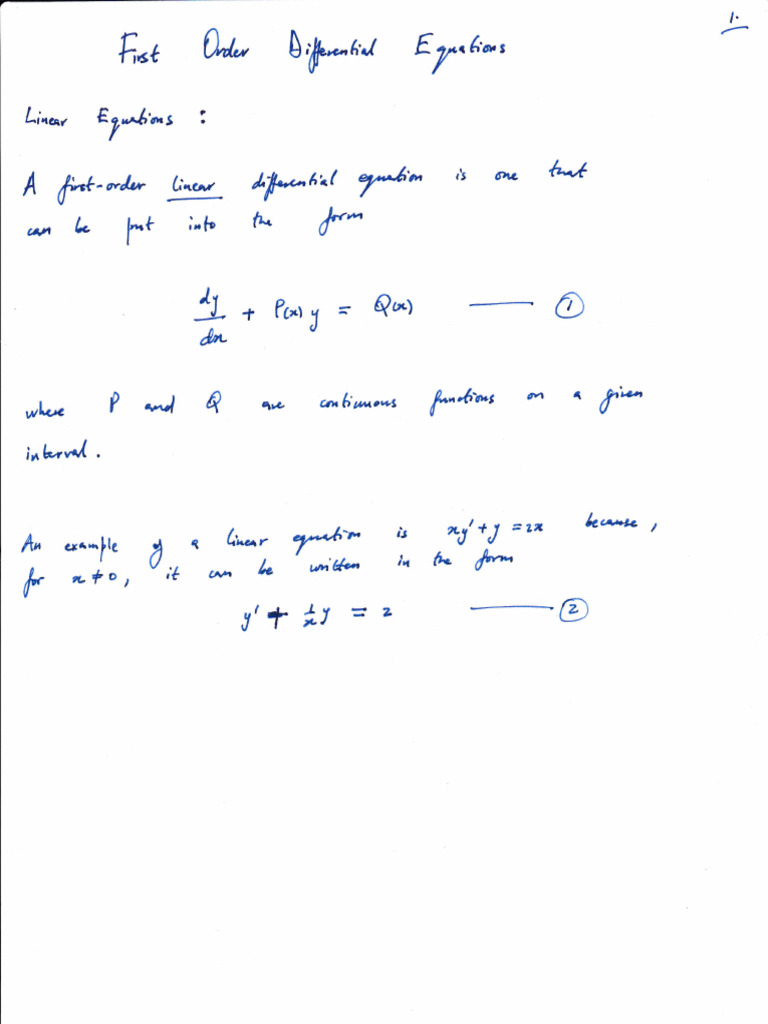 1.
First Order Differential Equations
Linear Equations :
A first-order linear differential equation is one that
can be put into the form
dy/dx + P(x) y = Q(x) ——— ①
where P and Q are continuous functions on a given
interval.
An example of a linear equation is xy' + y = 2x because,
for x ≠ 0, it can be written in the form
y' + 1/x y = 2 ——— ②